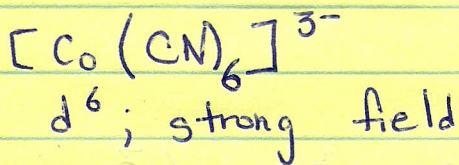 [Co(CN)₆]³⁻
d⁶; strong field